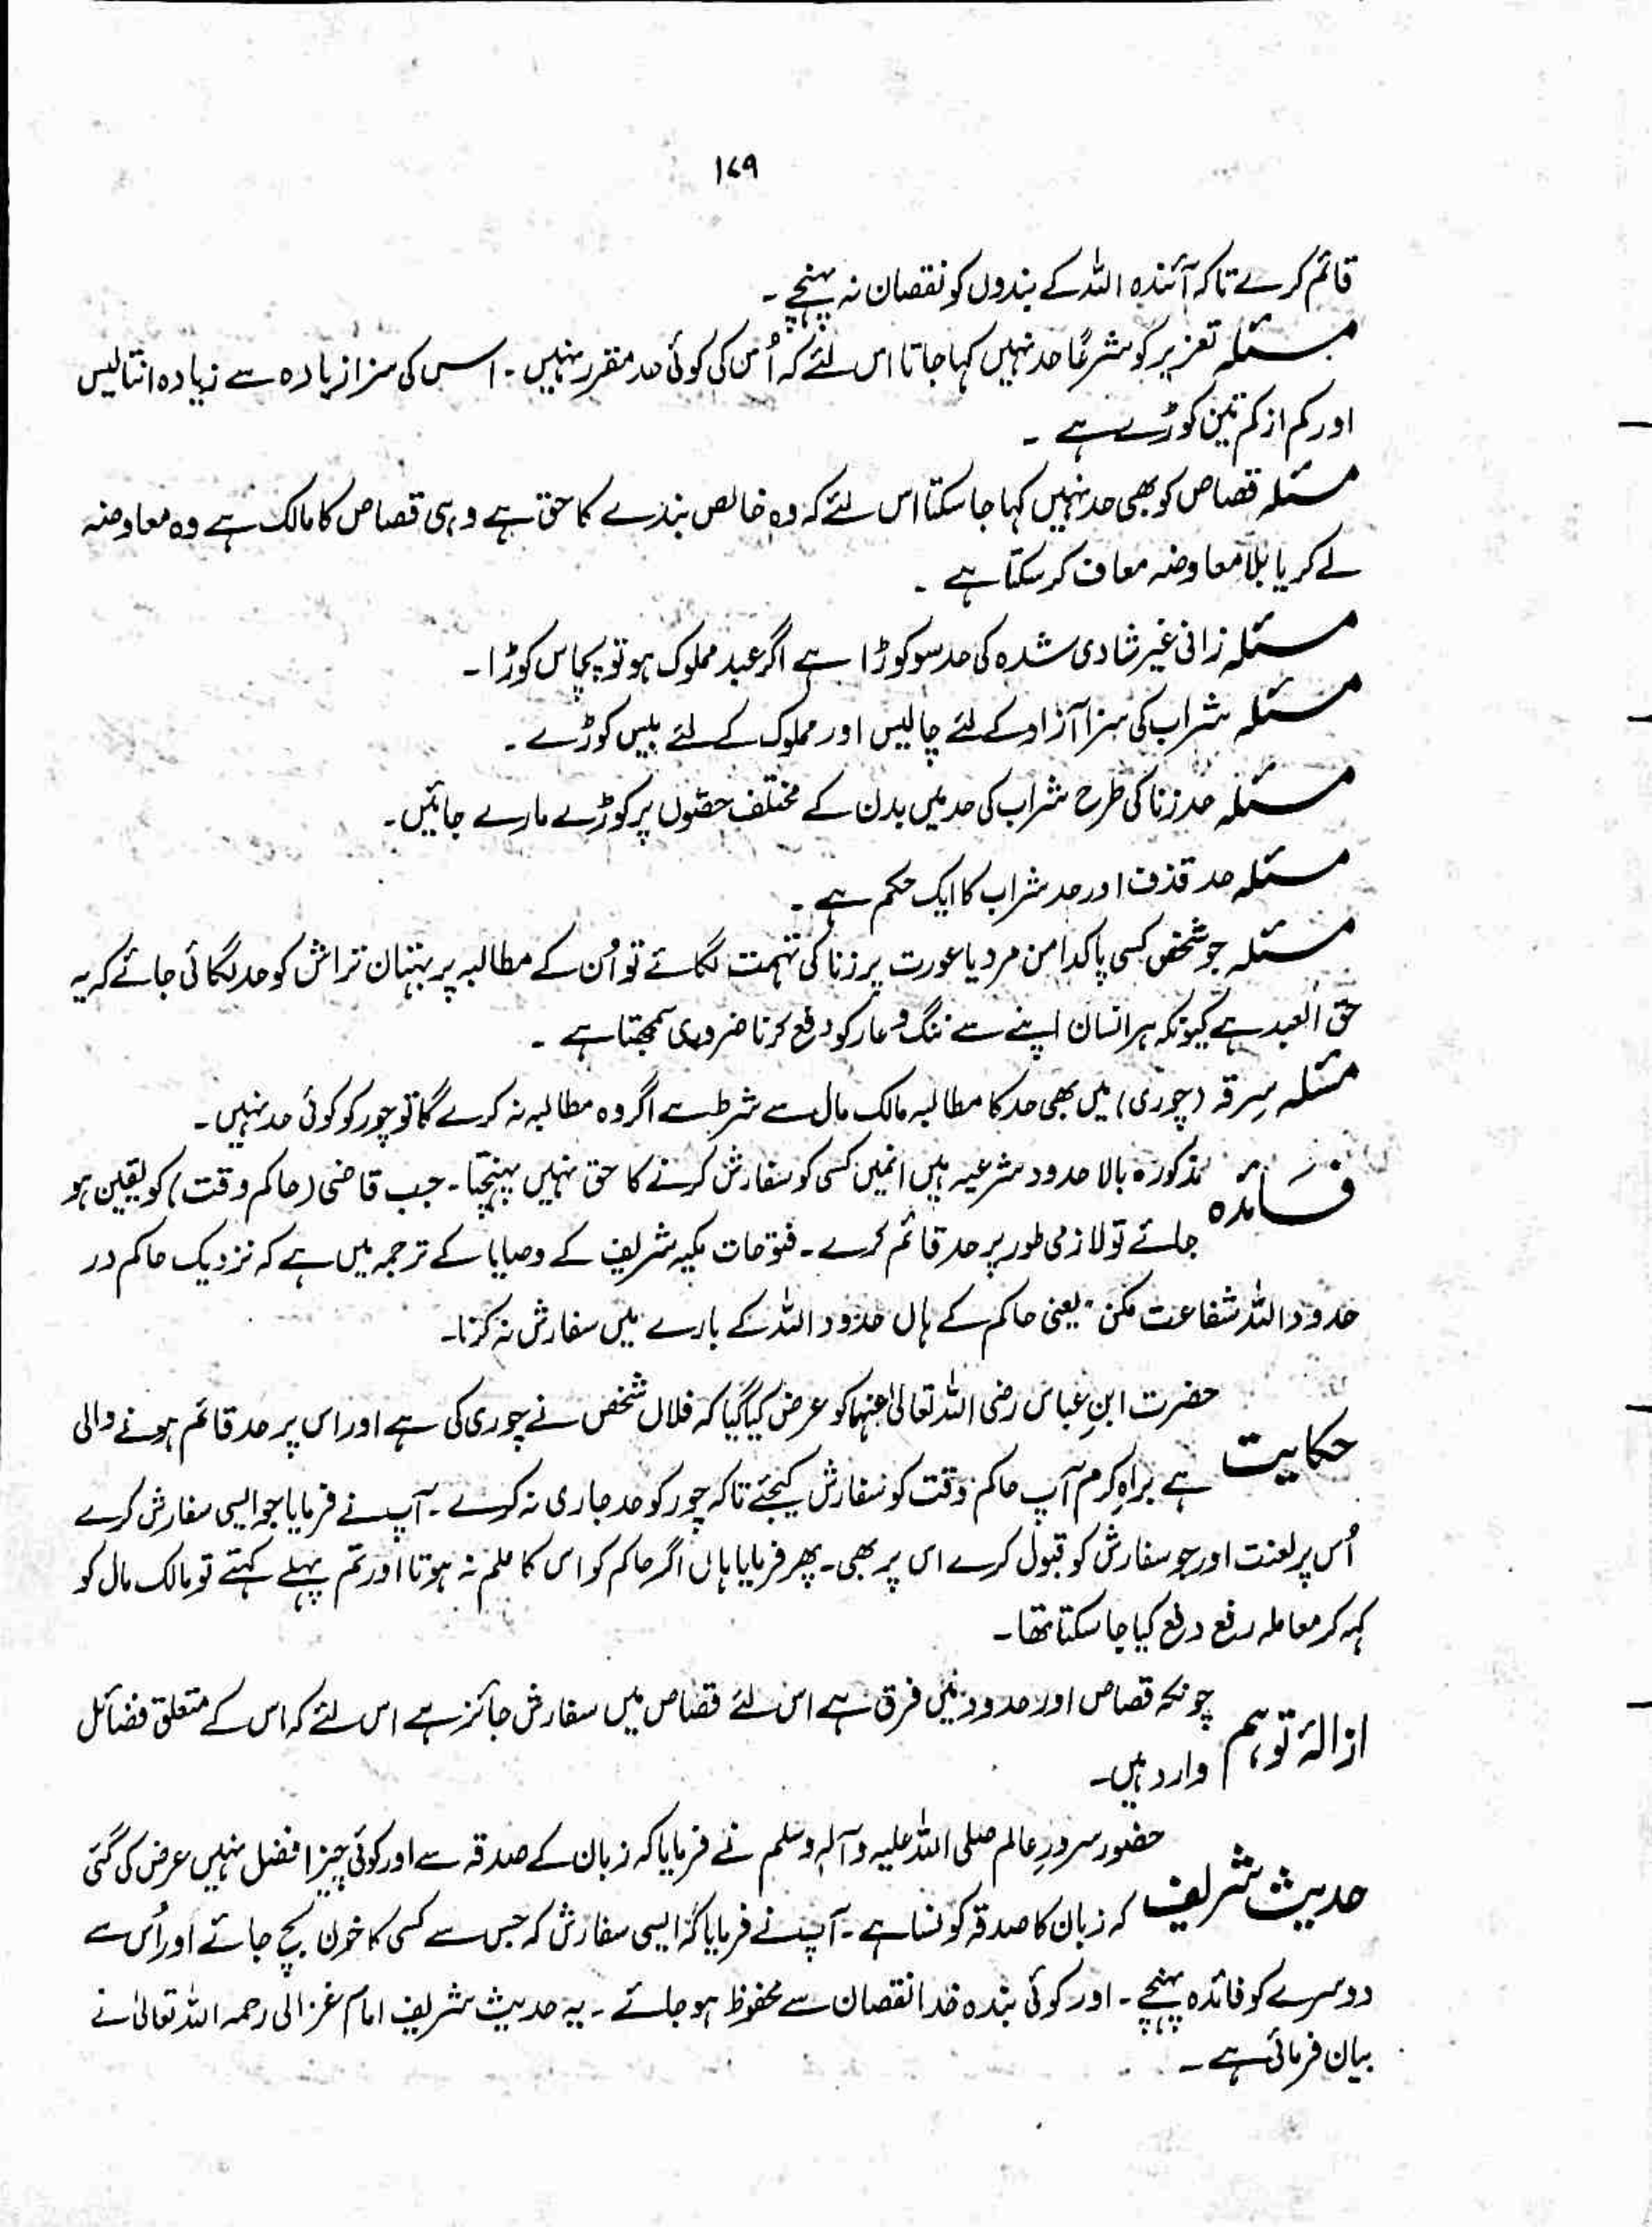 ۱۷۹
قائم کرے تاکہ آئندہ اللہ کے بندوں کو نقصان نہ پہنچے۔
مسئلہ تعزیر کو شرعًا حد نہیں کہا جاتا اس لئے کہ اُس کی کوئی حد مقرر نہیں۔ اس کی سزا زیادہ سے زیادہ انتالیس
اور کم از کم تین کوڑے ہے۔
مسئلہ قصاص کو بھی حد نہیں کہا جا سکتا اس لئے کہ وہ خالص بندے کا حق ہے وہی قصاص کا مالک ہے وہ معاوضہ
لے کر یا بلا معاوضہ معاف کر سکتا ہے۔
مسئلہ زانی غیر شادی شدہ کی حد سو کوڑا ہے اگر عبد مملوک ہو تو پچاس کوڑا۔
مسئلہ شراب کی سزا آزاد کے لئے چالیس اور مملوک کے لئے بیس کوڑے۔
مسئلہ حد زنا کی طرح شراب کی حد میں بدن کے مختلف حصّوں پر کوڑے مارے جائیں۔
مسئلہ حد قذف اور حد شراب کا ایک حکم ہے۔
مسئلہ جو شخص کسی پاکدامن مرد یا عورت پر زنا کی تہمت لگائے تو اُن کے مطالبہ پر بہتان تراش کو حد لگائی جائے کہ یہ
حق العبد ہے کیونکہ ہر انسان اپنے سے ننگ و عار کو دفع کرنا ضروری سمجھتا ہے۔
مسئلہ سرقہ (چوری) میں بھی حد کا مطالبہ مالک مال سے شرط ہے اگر وہ مطالبہ نہ کرے گا تو چور کو کوئی حد نہیں۔
فائدہ مذکورہ بالا حدود شرعیہ ہیں انمیں کسی کو سفارش کرنے کا حق نہیں پہنچتا۔ جب قاضی (حاکم وقت) کو یقین ہو
جائے تو لازمی طور پر حد قائم کرے۔ فتوحات مکیہ شریف کے وصایا کے ترجمہ میں ہے کہ نزدیک حاکم در
حدود اللہ شفاعت مکن" یعنی حاکم کے ہاں حدود اللہ کے بارے میں سفارش نہ کرنا۔
حکایت حضرت ابنِ عباس رضی اللہ تعالیٰ عنہما کو عرض کیا گیا کہ فلاں شخص نے چوری کی ہے اور اس پر حد قائم ہونے والی
ہے براہِ کرم آپ حاکم وقت کو سفارش کیجئے تاکہ چور کو حد جاری نہ کرے۔ آپ نے فرمایا جو ایسی سفارش کرے
اُس پر لعنت اور جو سفارش کو قبول کرے اس پر بھی۔ پھر فرمایا ہاں اگر حاکم کو اس کا علم نہ ہوتا اور تم پہلے کہتے تو مالک مال کو
کہہ کر معاملہ رفع دفع کیا جا سکتا تھا۔
ازالۂ توہم چونکہ قصاص اور حدود میں فرق ہے اس لئے قصاص میں سفارش جائز ہے اس لئے کہ اس کے متعلق فضائل
وارد ہیں۔
حدیث شریف حضور سرورِ عالم صلی اللہ علیہ وآلہٖ وسلم نے فرمایا کہ زبان کے صدقہ سے اور کوئی چیز افضل نہیں عرض کی گئی
کہ زبان کا صدقہ کونسا ہے۔ آپ نے فرمایا کہ ایسی سفارش کہ جس سے کسی کا خون بچ جائے اور اُس سے
دوسرے کو فائدہ پہنچے۔ اور کوئی بندہ خدا نقصان سے محفوظ ہو جائے۔ یہ حدیث شریف امام غزالی رحمہ اللہ تعالیٰ نے
بیان فرمائی ہے۔